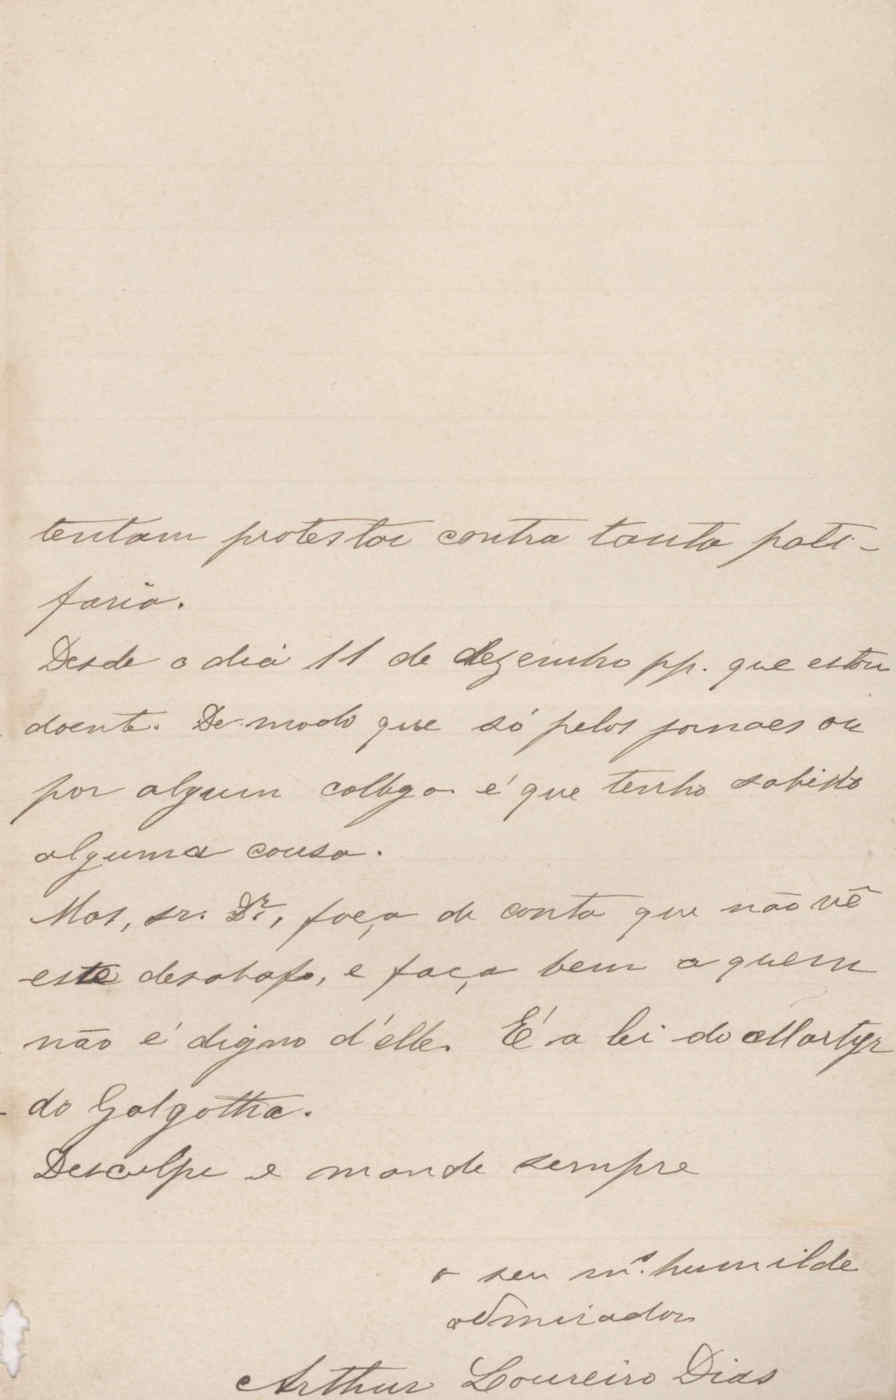 tentam protestar contra tanta pati-
faria.
Desde o dia 11 de dezembro pp. que estou
doente. De modo que só pelos jornaes ou
por algum collega é que tenho sabido
alguma cousa.
Mas, sr. Dr., faça de conta que não vê
este desabafo, e faça bem a quem
não é digno d'elle. É a lei do Martyr
do Golgotha.
Desculpe e mande sempre
o seu mo. humilde
admirador
Arthur Loureiro Dias